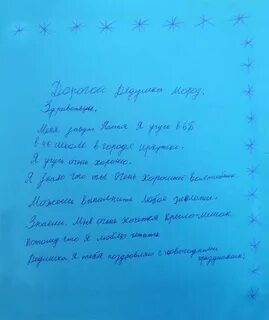 Дорогой Дедушка мороз.
Здравствуйте.
Меня зовут Настя Я учусь в 6Б
в 40 школе в городе Иркутске.
Я учусь очень хорошо.
Я знаю что ты очень хороший волшебник
Можешь выполнить любое желание.
Знаешь. Мне очень хочется кресло-мешок.
Потому что Я люблю читать
Дедушка Я тебя поздравляю с новогодними
праздниками.